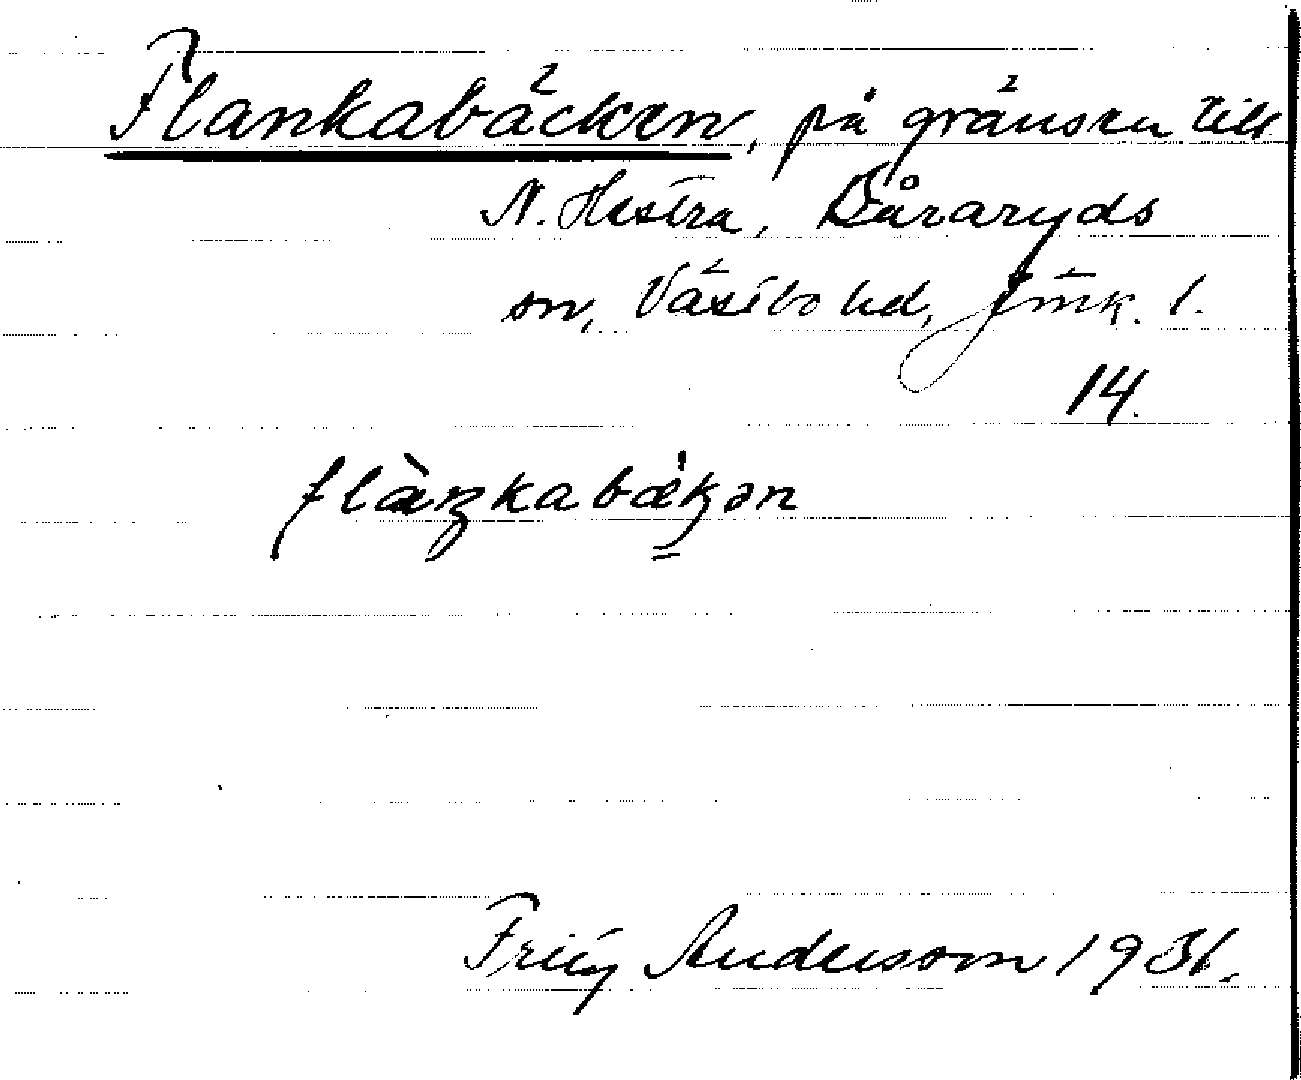 Flankabäcken, på gränsen till
N. Hestra, Båraryds
sn, Västbo hd, Jönk. l.
14.
flàŋkabækən
Fritz Andersson 1931.